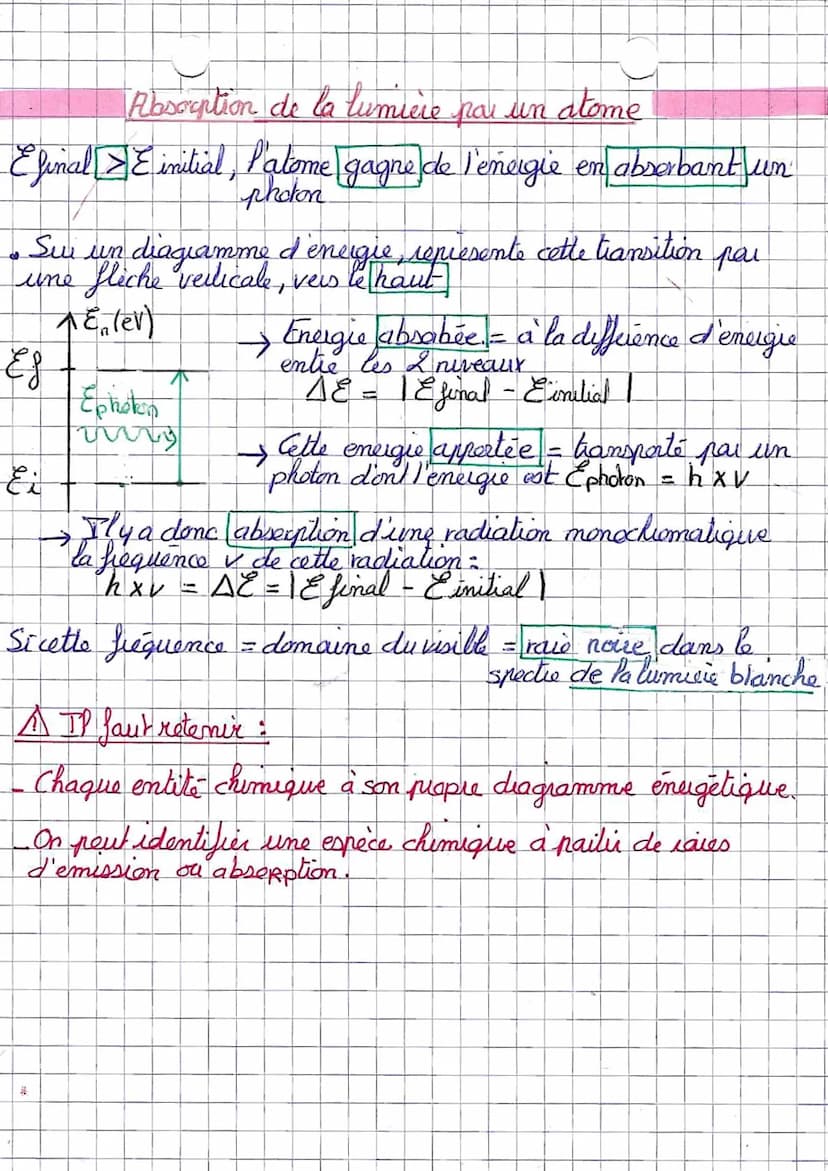 Absorption de la lumière par un atome
E final > E initial, l'atome gagne de l'énergie en absorbant un
photon
• Sur un diagramme d'énergie, représente cette transition par
une flèche verticale, vers le haut
Eₙ (eV)
→ Energie absobée = à la différence d'énergie
entre les 2 niveaux
Ef
ΔE = |E final - E initial|
Ephoton
→ Cette energie apportée = transporté par un
photon d'ont l'énergie est Ephoton = h x ν
Ei
→ Il y a donc absorption d'une radiation monochromatique
la fréquence ν de cette radiation :
h x ν = ΔE = |E final - E initial|
Si cette fréquence = domaine du visible = raie noire dans le
spectre de la lumière blanche
⚠ Il faut retenir :
- Chaque entité chimique à son propre diagramme énergétique.
- On peut identifier une espèce chimique à partir de raies
d'emission ou absorption.